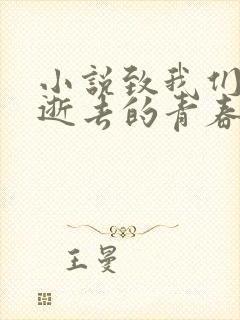 小说致我们
逝去的青春
王曼